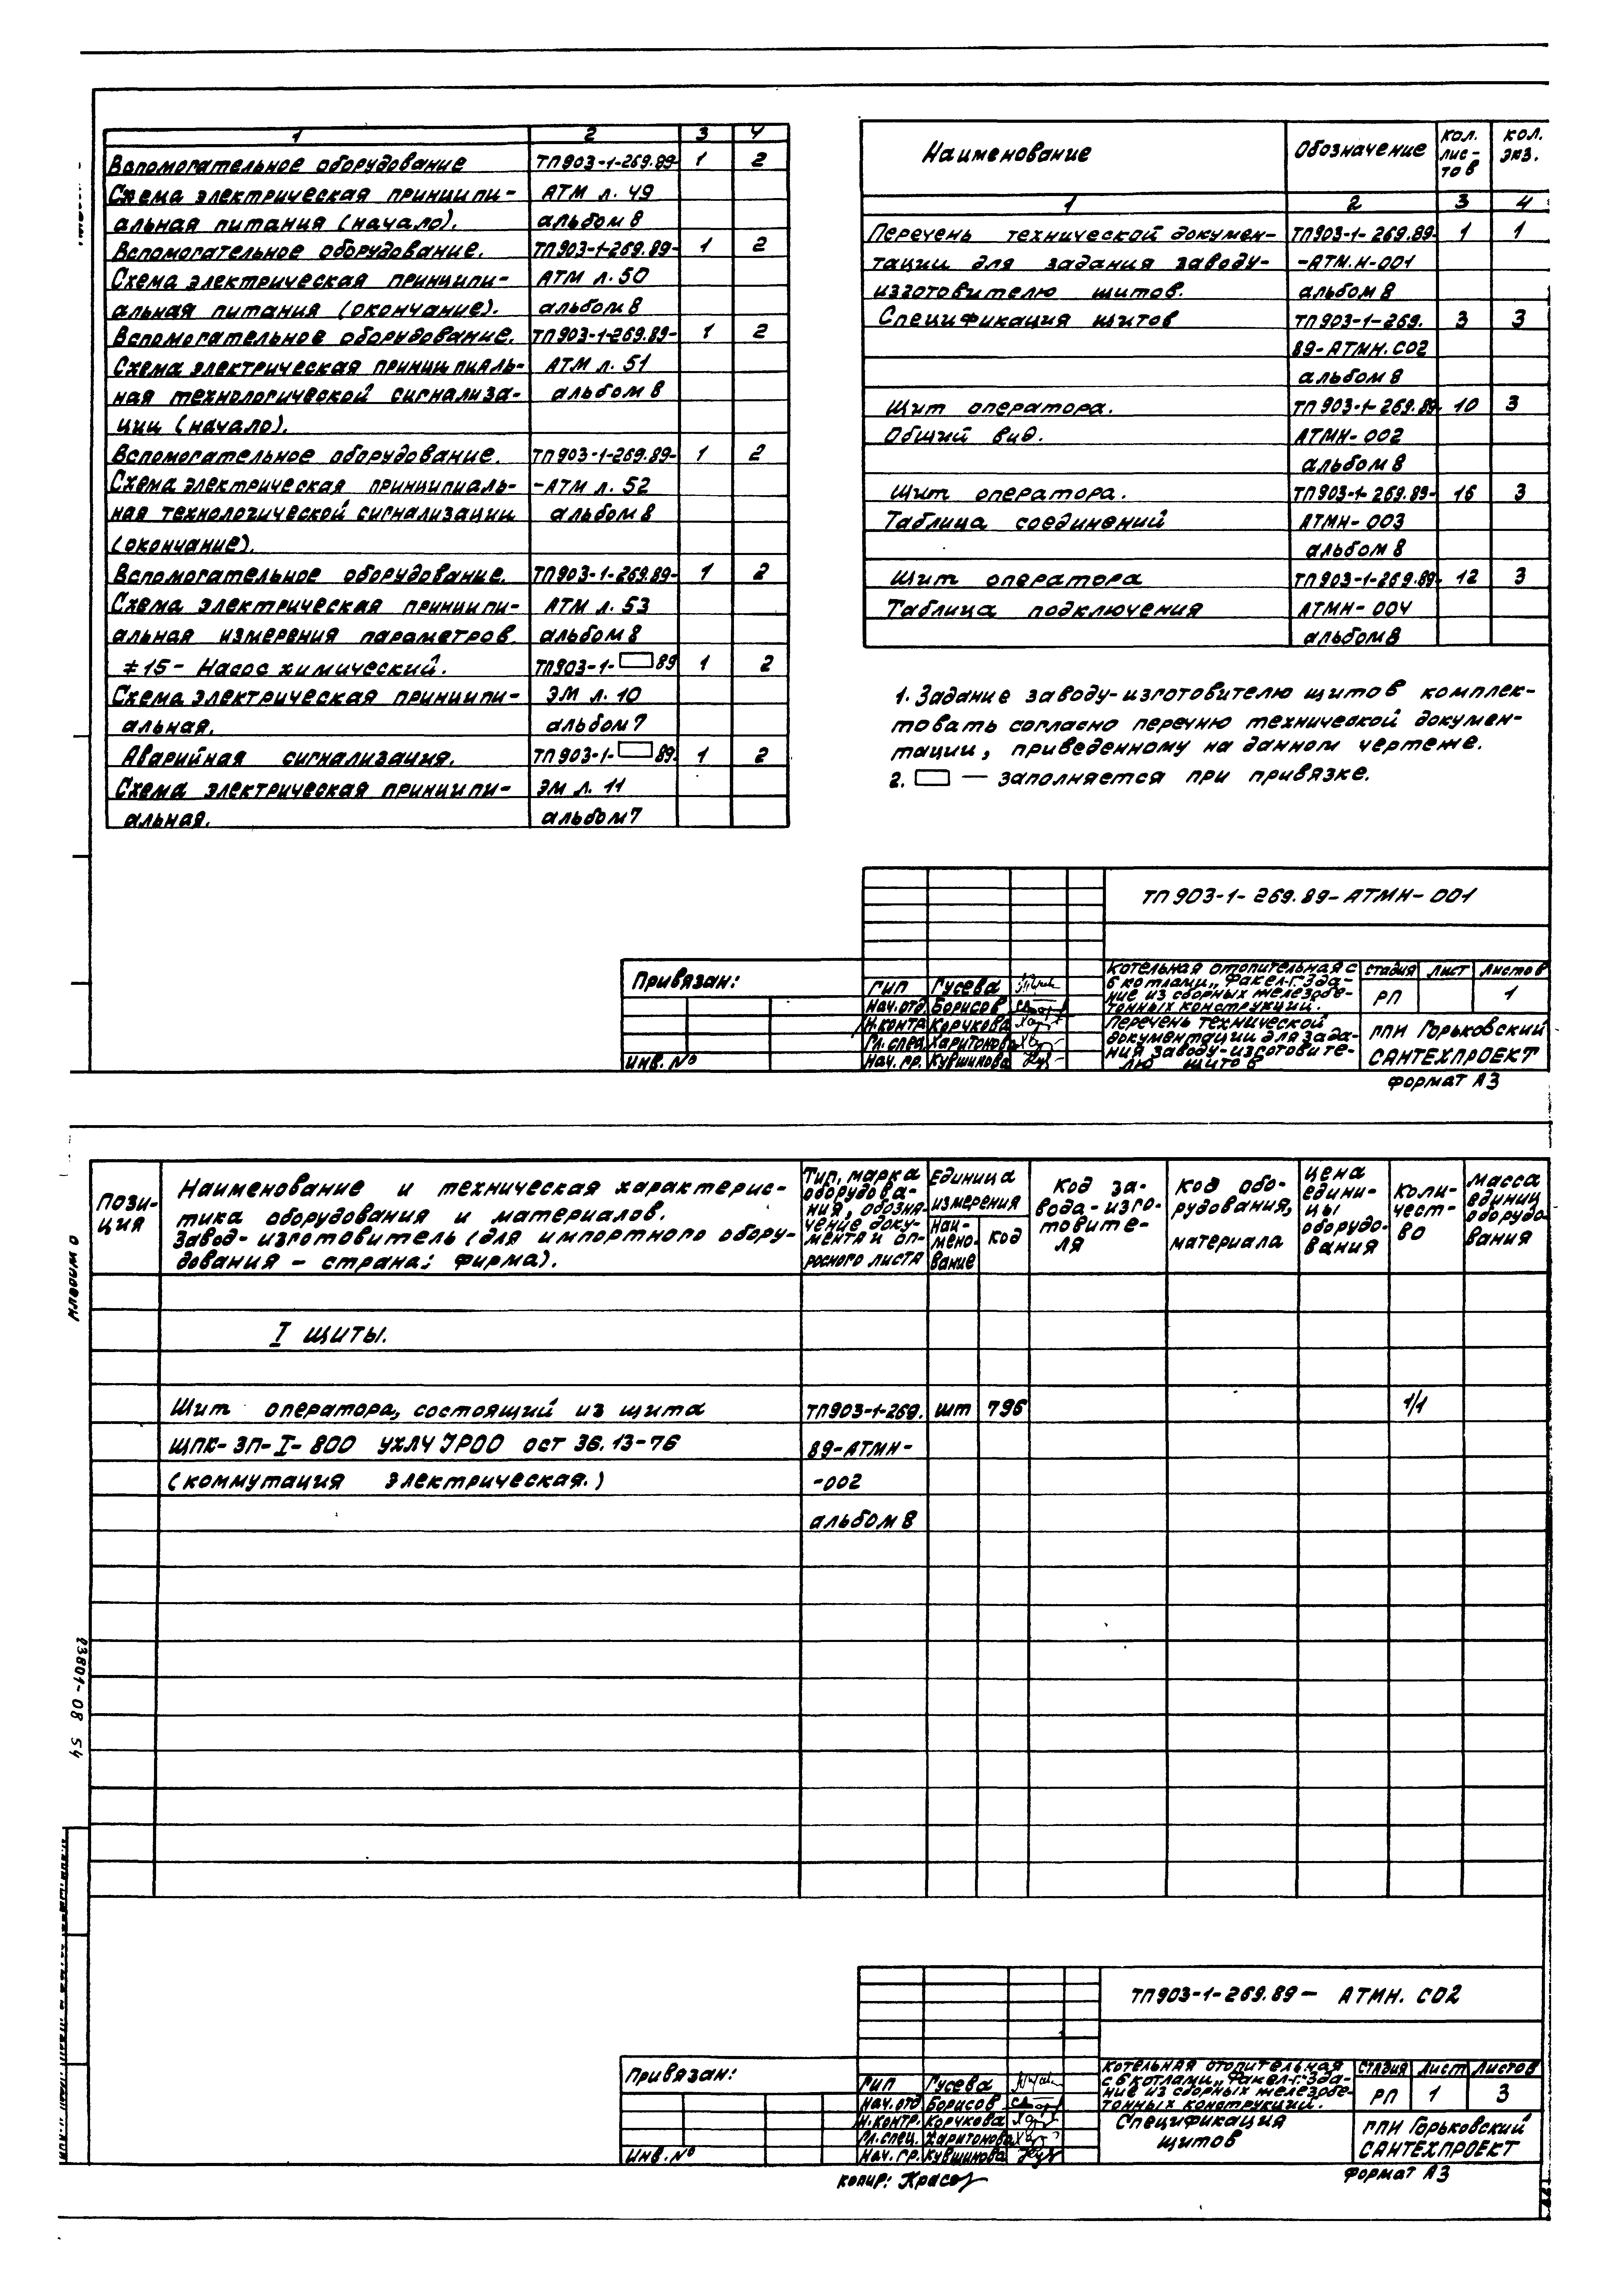 1 2 3 4
Вспомогательное оборудование ТП903-1-269.89- 1 2
Схема электрическая принципи- АТМ л. 49
альная питания (начало). альбом 8
Вспомогательное оборудование. ТП903-1-269.89- 1 2
Схема электрическая принципи- АТМ л. 50
альная питания (окончание). альбом 8
Вспомогательное оборудование. ТП903-1-269.89- 1 2
Схема электрическая принципиаль- АТМ л. 51
ная технологической сигнализа- альбом 8
ции (начало).
Вспомогательное оборудование. ТП903-1-269.89- 1 2
Схема электрическая принципиаль- -АТМ л. 52
ная технологической сигнализации альбом 8
(окончание).
Вспомогательное оборудование. ТП903-1-269.89- 1 2
Схема электрическая принципи- АТМ л. 53
альная измерения параметров. альбом 8
≠15- Насос химический. ТП903-1- 89 1 2
Схема электрическая принципи- ЭМ л. 10
альная. альбом 7
Аварийная сигнализация. ТП903-1- 89. 1 2
Схема электрическая принципи- ЭМ л. 11
альная. альбом 7
Наименование Обозначение Кол. лис- тов Кол. экз.
1 2 3 4
Перечень технической докумен- ТП903-1-269.89- 1 1
тации для задания заводу- -АТМ.Н-001
изготовителю щитов. альбом 8
Спецификация щитов ТП903-1-269. 3 3
89-АТМН.СО2
альбом 8
Щит оператора. ТП903-1-269.89- 10 3
Общий вид. АТМН-002
альбом 8
Щит оператора. ТП903-1-269.89- 16 3
Таблица соединений АТМН-003
альбом 8
Щит оператора ТП903-1-269.89- 12 3
Таблица подключения АТМН-004
альбом 8
1. Задание заводу-изготовителю щитов комплек-
товать согласно перечню технической докумен-
тации, приведенному на данном чертеже.
2. — заполняется при привязке.
ТП903-1-269.89-АТМН-001
Привязан:
Инв. №
ГИП Гусева
Нач.отд Борисов
Н.контр Корчкова
Гл.спец. Харитонова
Нач. гр. Кувшинова
Котельная отопительная с
6 котлами „Факел-Г". Зда-
ние из сборных железобе-
тонных конструкций.
Стадия Лист Листов
РП 1
Перечень технической
документации для зада-
ния заводу-изготовите-
лю щитов
ГПИ Горьковский
САНТЕХПРОЕКТ
Формат А3
Пози-
ция
Наименование и техническая характерис-
тика оборудования и материалов.
Завод-изготовитель (для импортного обору-
дования - страна; фирма).
Тип, марка
оборудова-
ния, обозна-
чение доку-
мента и оп-
росного листа
Единица
измерения
Наи-
мено-
вание
Код
Код за-
вода-изго-
товите-
ля
Код обо-
рудования,
материала
Цена
едини-
цы
оборудо-
вания
Коли-
чест-
во
Масса
единиц
оборудо-
вания
I щиты.
Щит оператора, состоящий из щита ТП903-1-269. шт 796 1/1
ЩПК-ЗП-I-800 УХЛЧ IP00 ост 36.13-76 89-АТМН-
(коммутация электрическая.) -002
альбом 8
23801-08 54
ТП903-1-269.89- АТМН. СО2
Привязан:
Инв. №
ГИП Гусева
Нач.отд Борисов
Н.контр. Корчкова
Гл.спец. Харитонова
Нач. гр. Кувшинова
Котельная отопительная
с 6 котлами „Факел-Г". Зда-
ние из сборных железобе-
тонных конструкций.
Стадия Лист Листов
РП 1 3
Спецификация
щитов
ГПИ Горьковский
САНТЕХПРОЕКТ
Копир: Формат А3